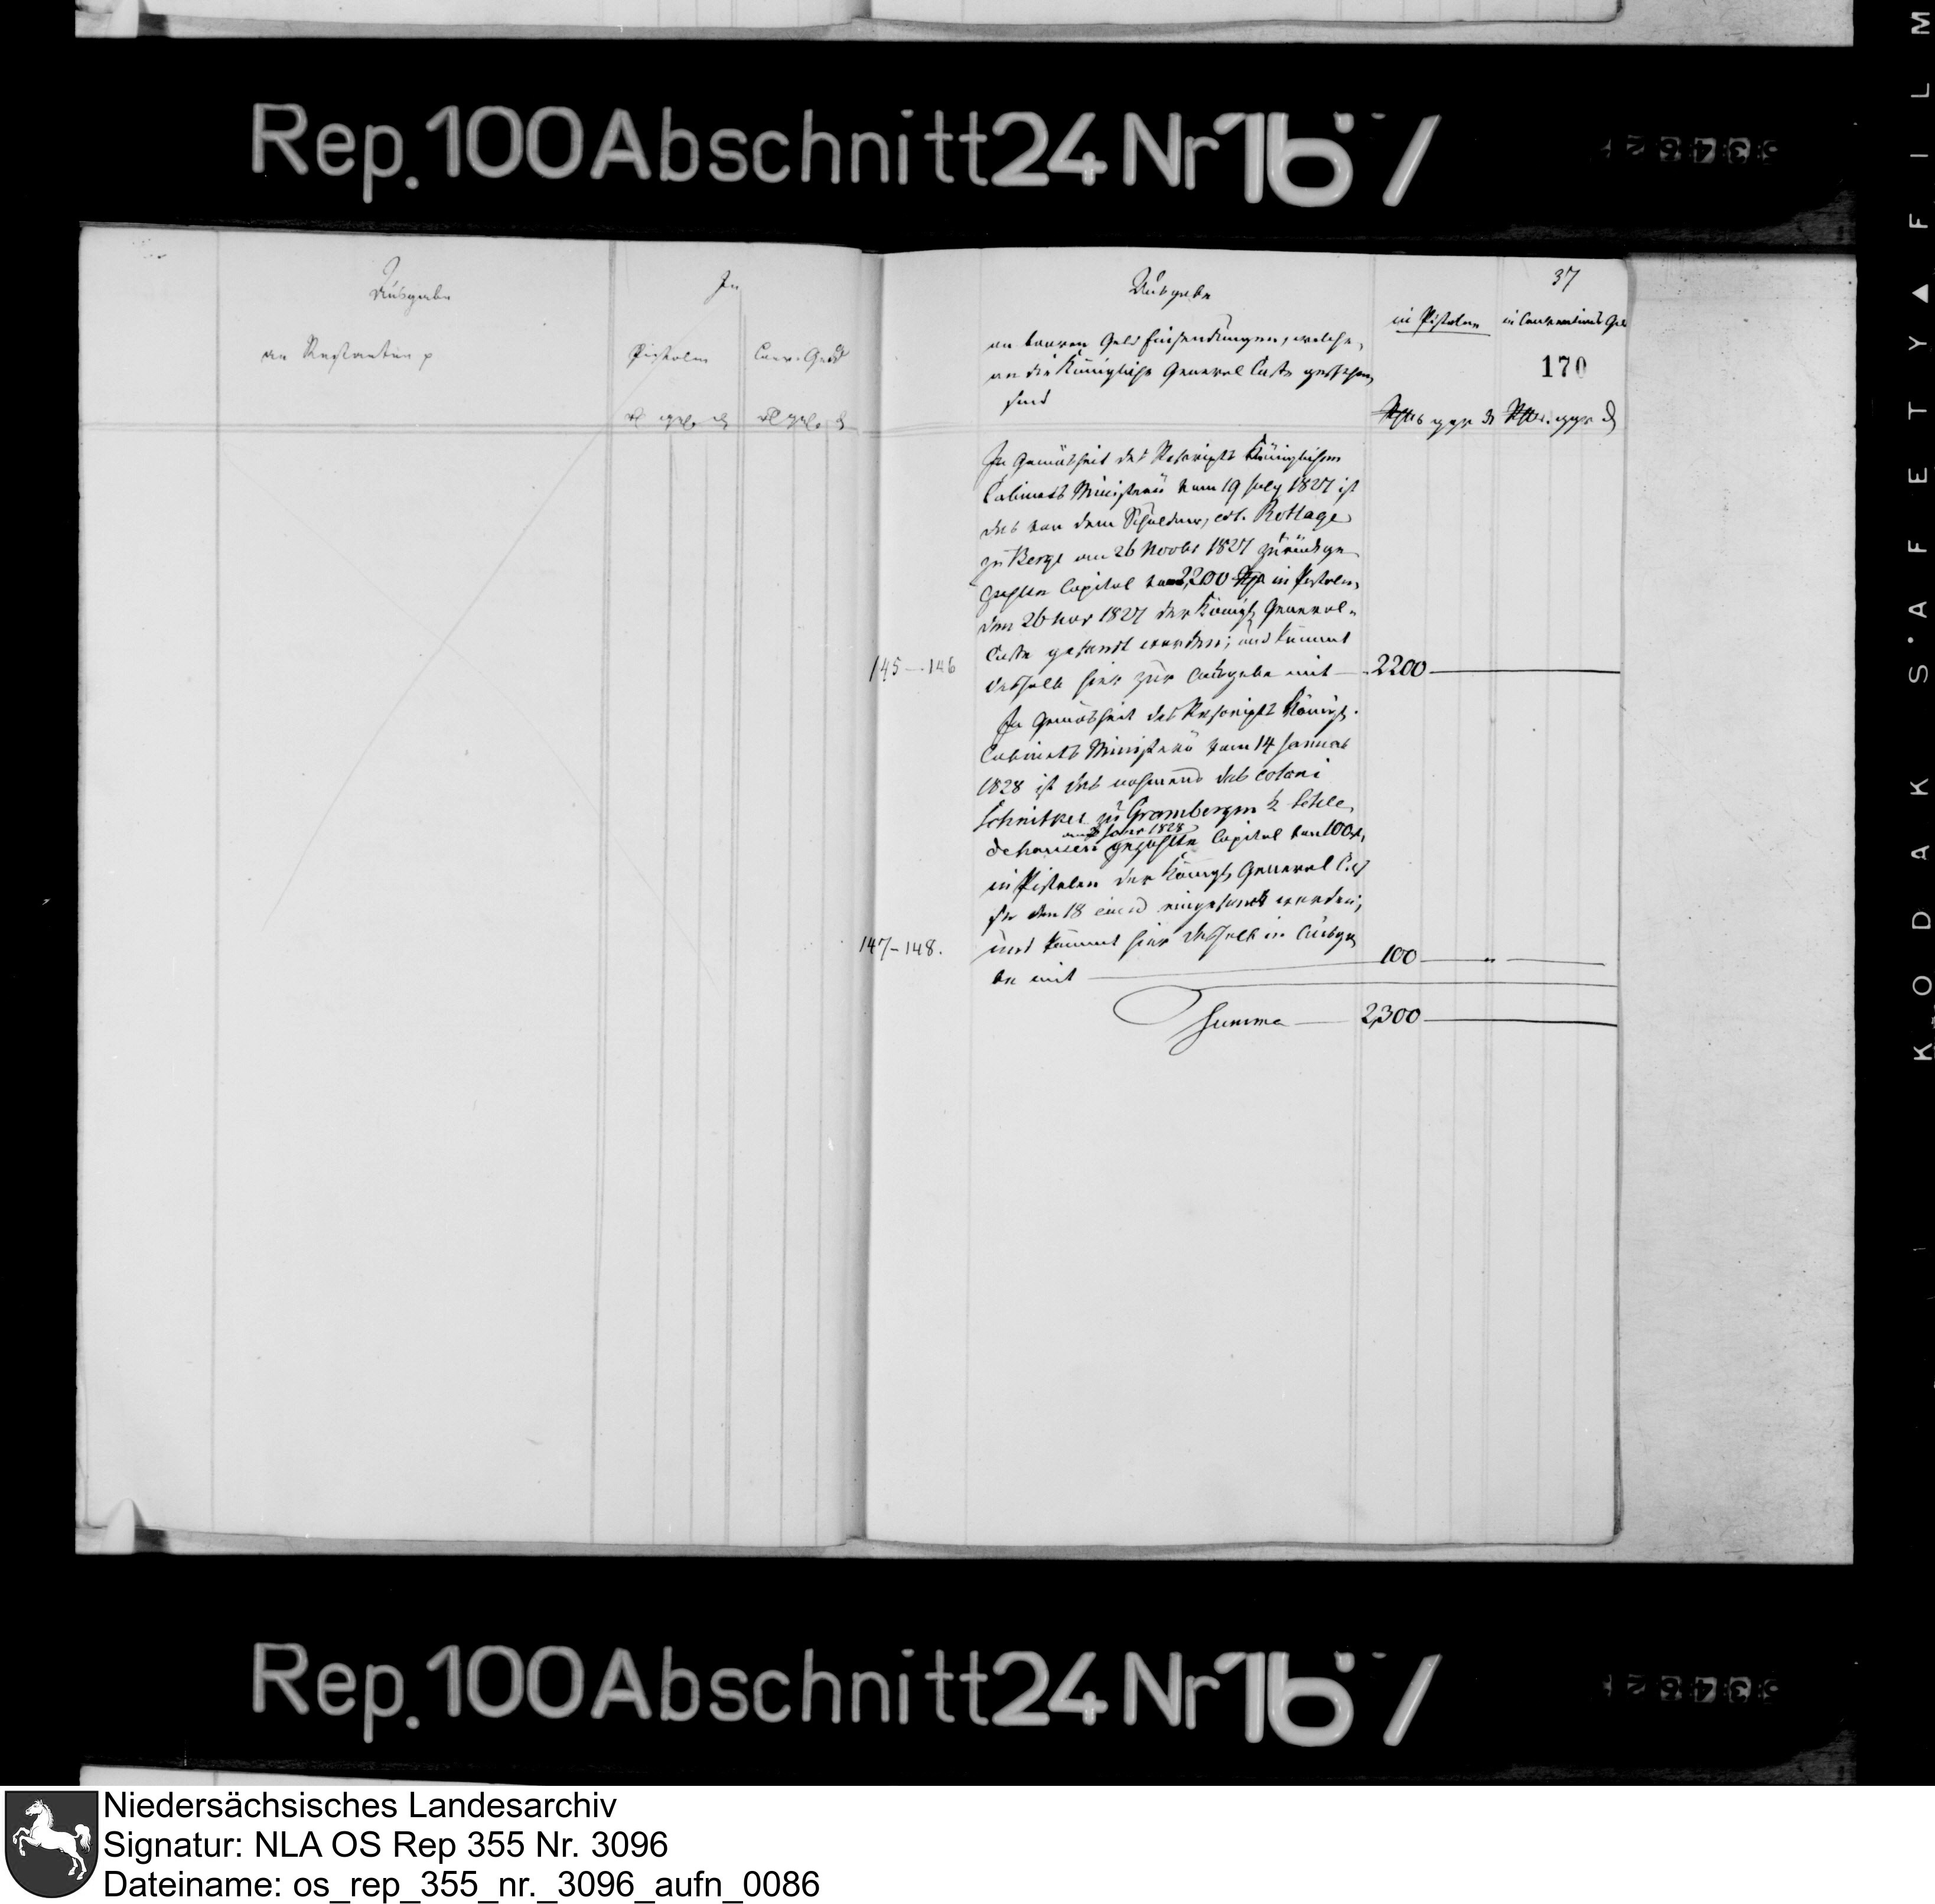 Rep. 100 Abschnitt 24 Nr 16 /
Ausgabe
an Restanten p
In
Pistolen
Conv. Geld
Ausgabe
an baaren Geld Einsendungen, welche
an die Königliche General Casse geschehen
sind
in Pistolen
in Conventions Geld
37
170
Rthlr ggr d Rthlr. ggr d
In Gemäsheit des Rescripts Königlichen
Cabinets Ministerii vom 19 July 1827 ist
das von dem Schuldner, col. Rottage
zu Berge am 26 Novbr 1827 zurückge
zahlte Capital von 2200 in Pistolen,
den 26 Nov 1827 der Königl General-
Casse gesandt worden; und kommt
145 – 146
deshalb hier zur Ausgabe mit — 2200
In Gemäsheit des Rescripts Königl.
Cabinets Ministerii vom 14 Januar
1828 ist das nahmens des coloni
Schnitker zu Grambergen
am Janr 1828
gezahlte Capital von 100
in Pistolen der Königl General Cas
se den 18 eingesandt worden;
147 – 148.
und kommt hier deshalb in Ausga
be mit — 100
Summa — 2300
Rep. 100 Abschnitt 24 Nr 16 /
KODAK SAFETY FILM
Niedersächsisches Landesarchiv
Signatur: NLA OS Rep 355 Nr. 3096
Dateiname: os_rep_355_nr._3096_aufn_0086